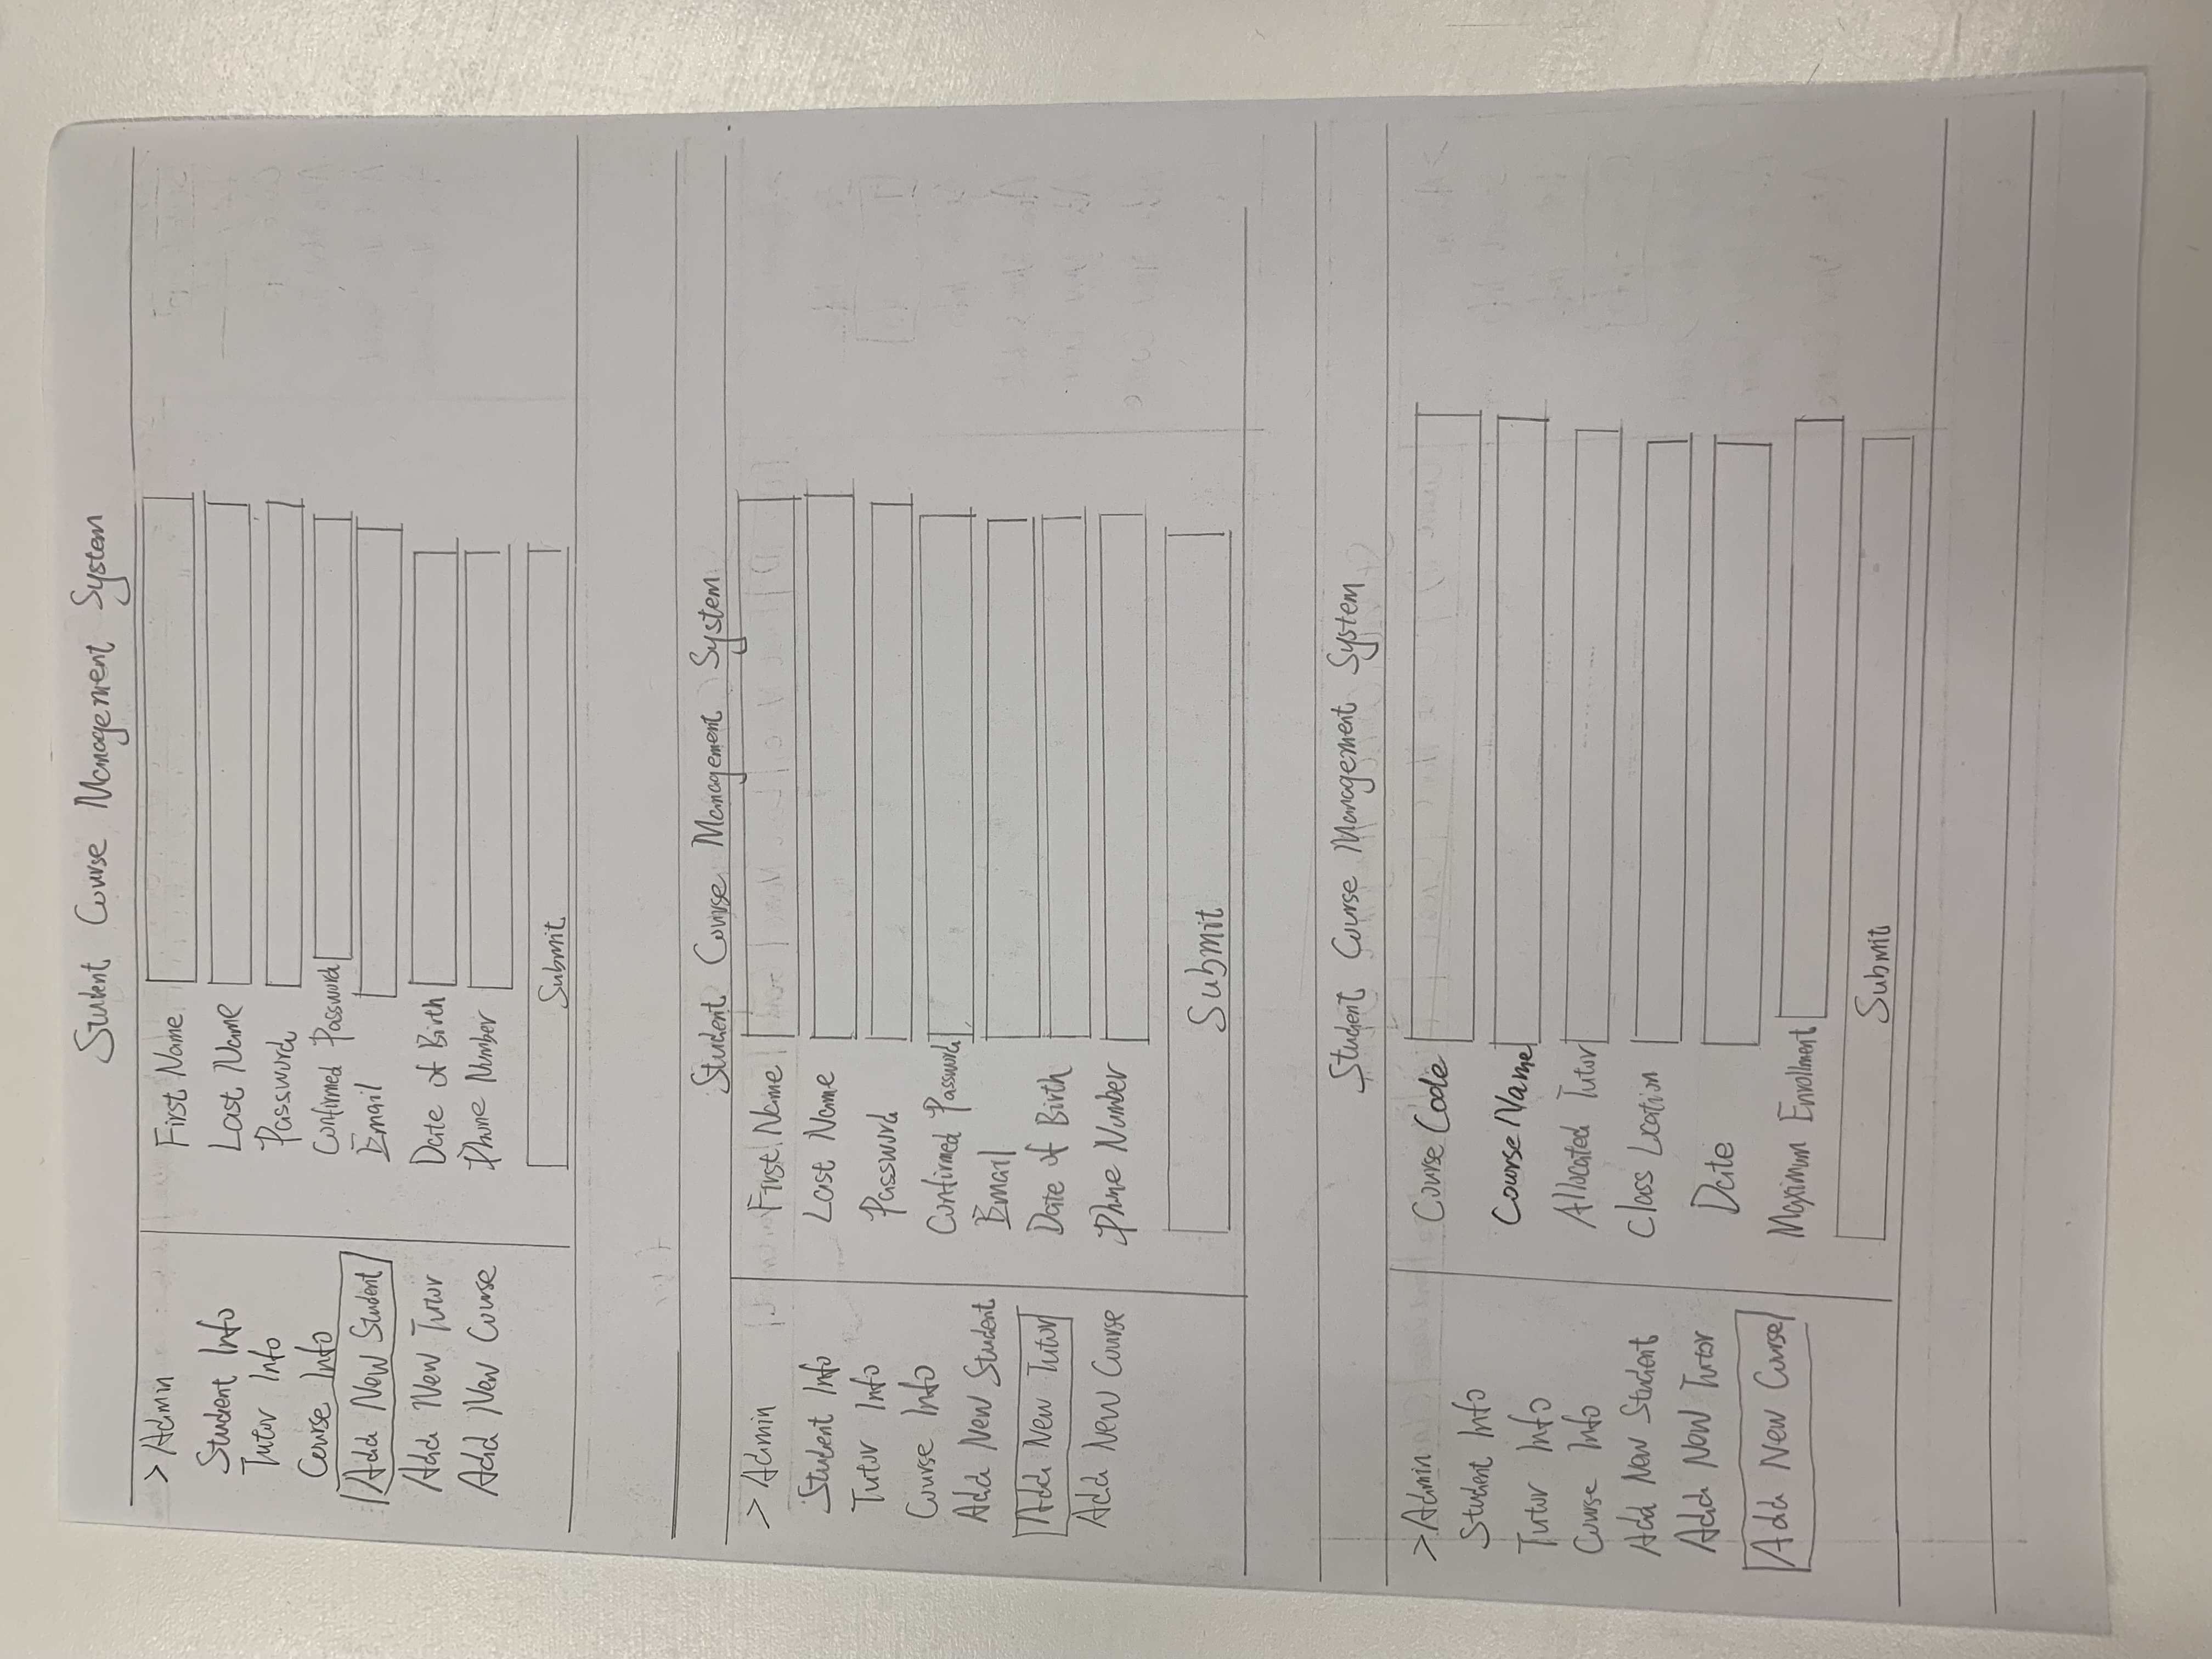 Student Course Management System
> Admin
Student Info
Tutor Info
Course Info
Add New Student
Add New Tutor
Add New Course
First Name
Last Name
Password
Confirmed Password
Email
Date of Birth
Phone Number
Submit
Student Course Management System
> Admin
Student Info
Tutor Info
Course Info
Add New Student
Add New Tutor
Add New Course
First Name
Last Name
Password
Confirmed Password
Email
Date of Birth
Phone Number
Submit
Student Course Management System
> Admin
Student Info
Tutor Info
Course Info
Add New Student
Add New Tutor
Add New Course
Course Code
Course Name
Allocated Tutor
Class Location
Date
Maximum Enrollment
Submit